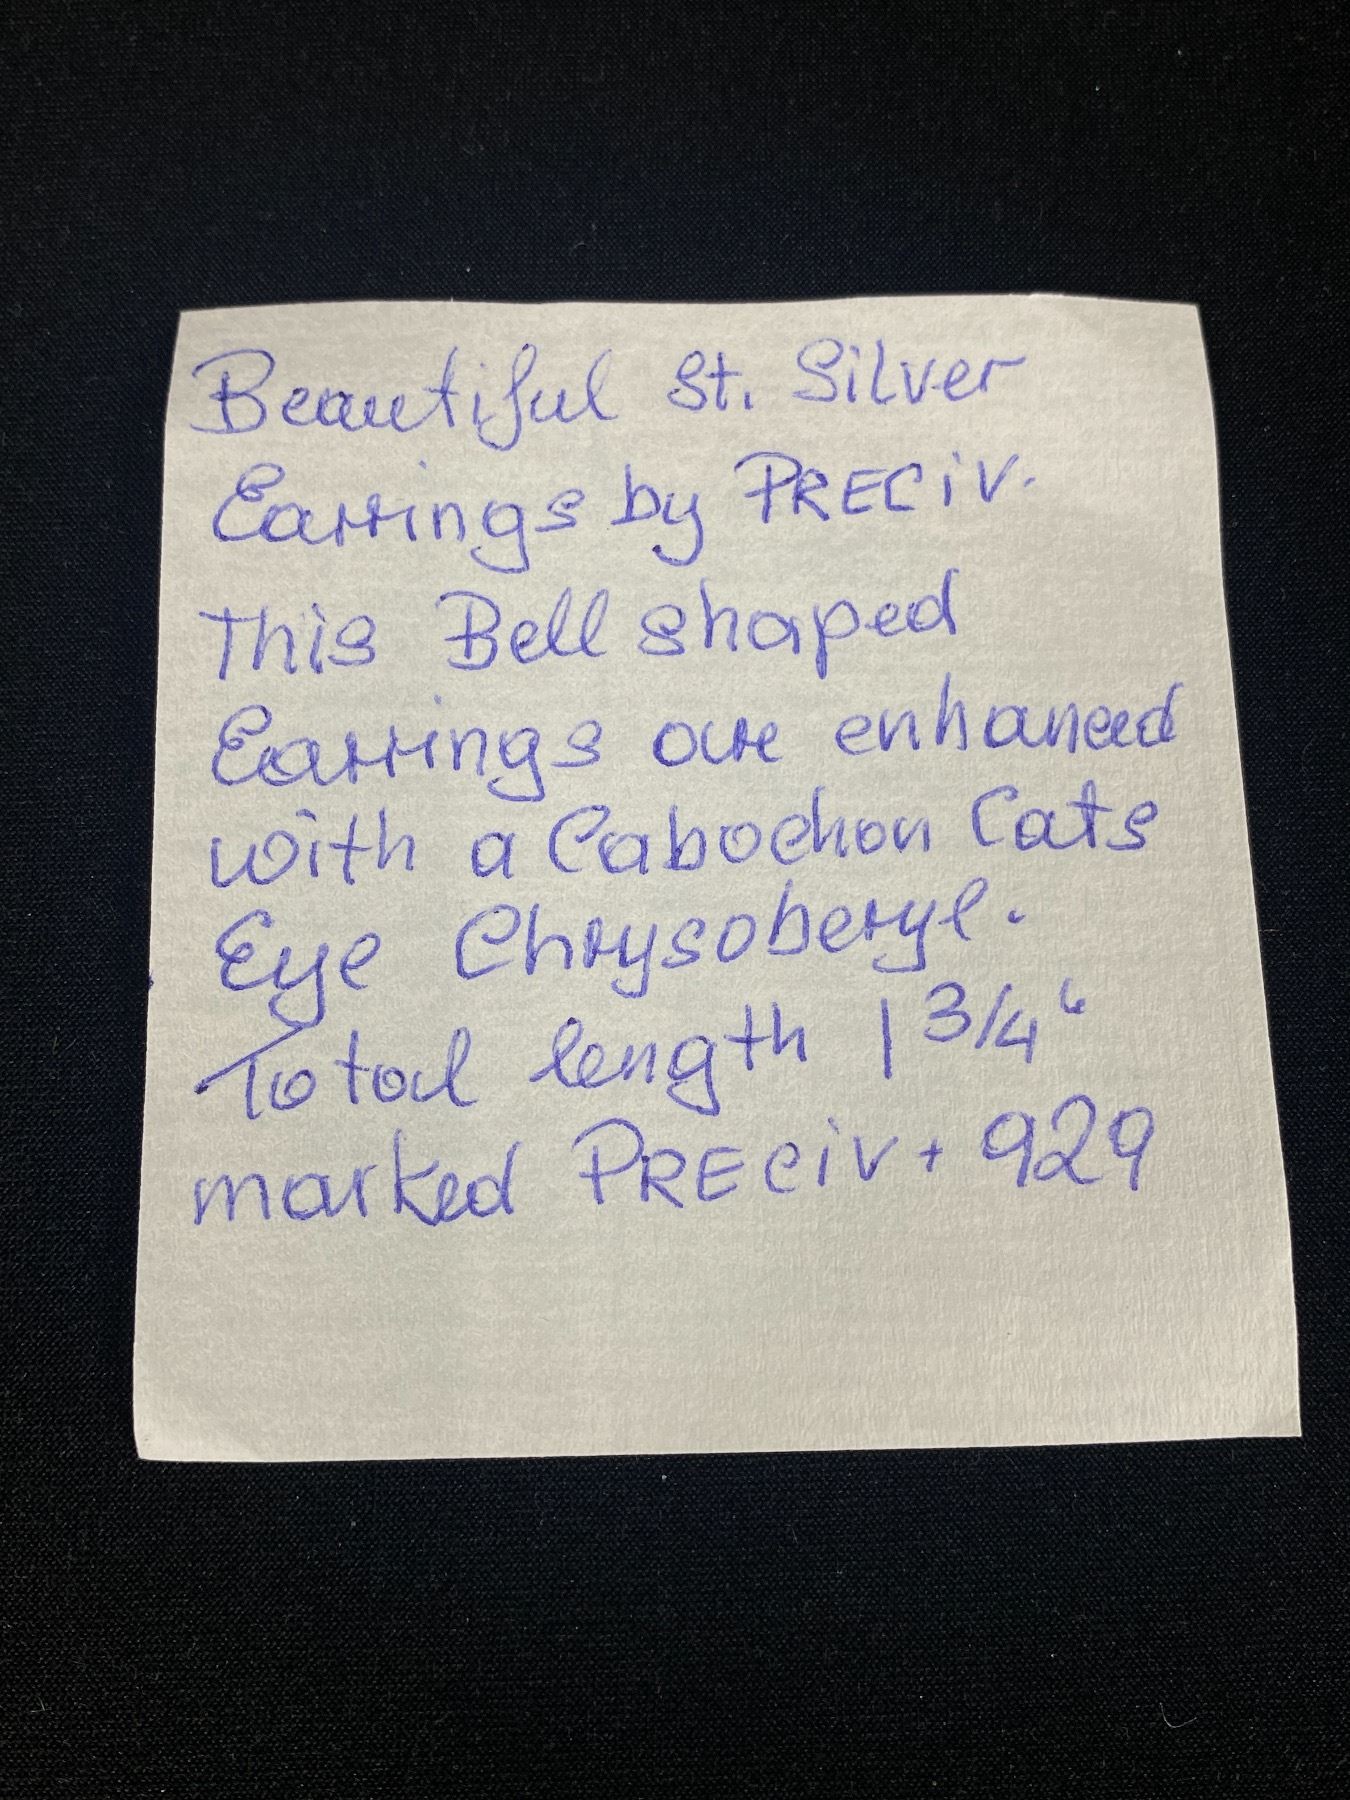 Beautiful St. Silver
Earrings by PRECiV.
This Bell shaped
Earrings are enhanced
with a Cabochon Cats
Eye Chrysoberyl.
Total length 1 3/4"
marked PRECiV + 929